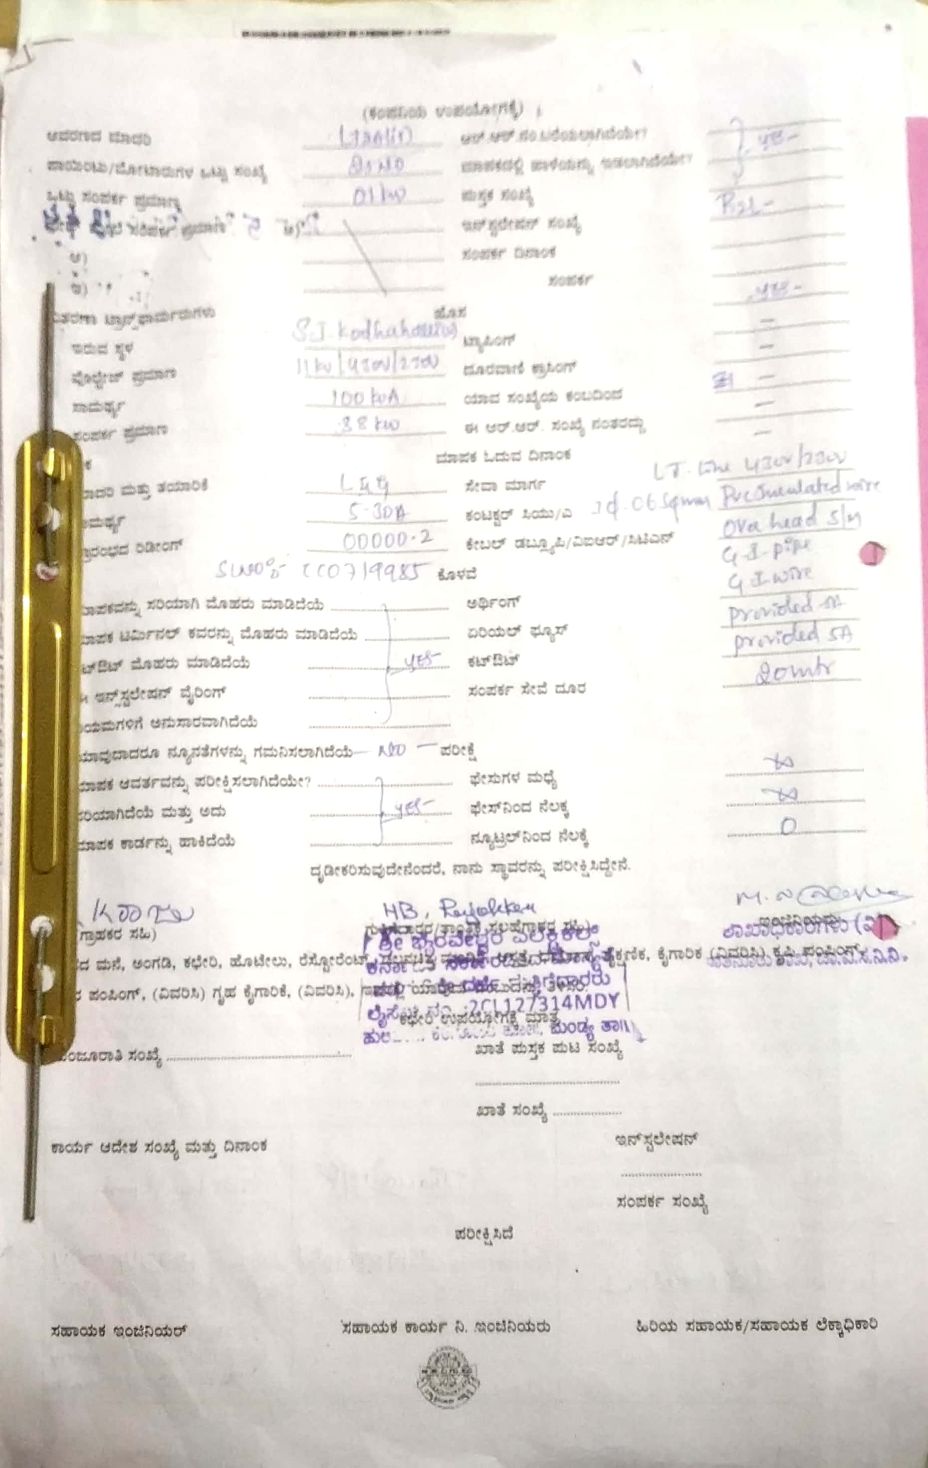 (ಕಂಪನಿಯ ಉಪಯೋಗಕ್ಕೆ)
ಆವರಣದ ಮಾದರಿ ಆರ್.ಆರ್.ನಂ.ಬರೆಯಲಾಗಿದೆಯೇ? yes-
ಪಾಯಿಂಟು/ಮೋಟಾರುಗಳ ಒಟ್ಟು ಸಂಖ್ಯೆ ಮಾಪಕದಲ್ಲಿ ಹಾಳೆಯನ್ನು ಇಡಲಾಗಿದೆಯೇ?
ಒಟ್ಟು ಸಂಪರ್ಕ ಪ್ರಮಾಣ 01 kw ಪುಸ್ತಕ ಸಂಖ್ಯೆ
ಸಂಪರ್ಕ ಪ್ರಮಾಣ ಇನ್‌ಸ್ಟಲೇಷನ್ ಸಂಖ್ಯೆ
ಅ) ಸಂಪರ್ಕ ದಿನಾಂಕ
ಇ) ಸಂಪರ್ಕ
ವಿತರಣಾ ಟ್ರಾನ್ಸ್‌ಫಾರ್ಮರುಗಳು ಹೊಸ yes-
ಇರುವ ಸ್ಥಳ ಟ್ಯಾಪಿಂಗ್ -
ವೋಲ್ಟೇಜ್ ಪ್ರಮಾಣ 11 kv/430v/230v ದೂರವಾಣಿ ಕ್ರಾಸಿಂಗ್ -
ಸಾಮರ್ಥ್ಯ 100 kvA ಯಾವ ಸಂಖ್ಯೆಯ ಕಂಬದಿಂದ -
ಸಂಪರ್ಕ ಪ್ರಮಾಣ 38 kw ಈ ಆರ್.ಆರ್. ಸಂಖ್ಯೆ ನಂತರದ್ದು -
ಕ ಮಾಪಕ ಓದುವ ದಿನಾಂಕ -
ಮಾದರಿ ಮತ್ತು ತಯಾರಿಕೆ L&G ಸೇವಾ ಮಾರ್ಗ LT. Line 430v/230v
ಸಾಮರ್ಥ್ಯ 5-30A ಕಂಟಕ್ಟರ್ ಸಿಯು/ಎ 06 Sqmm Pvc Insulated wire
ಪ್ರಾರಂಭದ ರಿಡೀಂಗ್ 00000.2 ಕೇಬಲ್ ಡಬ್ಲ್ಯೂಪಿ/ವಿಐಆರ್/ಸಿಟಿಎನ್ Over head
ಕೊಳವೆ G-I-pipe
ಮಾಪಕವನ್ನು ಸರಿಯಾಗಿ ಮೊಹರು ಮಾಡಿದೆಯೆ ಅರ್ಥಿಂಗ್ G I-wire
ಮಾಪಕ ಟರ್ಮಿನಲ್ ಕವರನ್ನು ಮೊಹರು ಮಾಡಿದೆಯೆ ಏರಿಯಲ್ ಫ್ಯೂಸ್ provided 5A
ಕಟ್‌ಔಟ್ ಮೊಹರು ಮಾಡಿದೆಯೆ yes- ಕಟ್‌ಔಟ್ provided 5A
ಈ ಇನ್‌ಸ್ಟಲೇಷನ್ ವೈರಿಂಗ್ ಸಂಪರ್ಕ ಸೇವೆ ದೂರ 20mtr
ನಿಯಮಗಳಿಗೆ ಅನುಸಾರವಾಗಿದೆಯೆ
ಯಾವುದಾದರೂ ನ್ಯೂನತೆಗಳನ್ನು ಗಮನಿಸಲಾಗಿದೆಯೆ - NO - ಪರೀಕ್ಷೆ
ಮಾಪಕ ಆವರ್ತವನ್ನು ಪರೀಕ್ಷಿಸಲಾಗಿದೆಯೇ? ಫೇಸುಗಳ ಮಧ್ಯೆ
ಸರಿಯಾಗಿದೆಯೆ ಮತ್ತು ಅದು yes- ಫೇಸ್‌ನಿಂದ ನೆಲಕ್ಕೆ
ಮಾಪಕ ಕಾರ್ಡನ್ನು ಹಾಕಿದೆಯೆ ನ್ಯೂಟ್ರಲ್‌ನಿಂದ ನೆಲಕ್ಕೆ 0
ದೃಢೀಕರಿಸುವುದೇನೆಂದರೆ, ನಾನು ಸ್ಥಾವರನ್ನು ಪರೀಕ್ಷಿಸಿದ್ದೇನೆ.
(ಗ್ರಾಹಕರ ಸಹಿ) ಇಂಜಿನಿಯರು
ಶಾಖಾಧಿಕಾರಿಗಳು (ವಿ)
ಮನೆ, ಅಂಗಡಿ, ಕಛೇರಿ, ಹೊಟೇಲು, ರೆಸ್ಟೋರೆಂಟ್, ಶೈಕ್ಷಣಿಕ, ಕೈಗಾರಿಕೆ (ವಿವರಿಸಿ) ಕೃಷಿ ಪಂಪಿಂಗ್
ಪಂಪಿಂಗ್, (ವಿವರಿಸಿ) ಗೃಹ ಕೈಗಾರಿಕೆ, (ವಿವರಿಸಿ),
2CL127314MDY
ಕಛೇರಿ ಉಪಯೋಗಕ್ಕೆ ಮಾತ್ರ
ಮಂಡ್ಯ ತಾ||
ಮಂಜೂರಾತಿ ಸಂಖ್ಯೆ ಖಾತೆ ಪುಸ್ತಕ ಪುಟ ಸಂಖ್ಯೆ
ಖಾತೆ ಸಂಖ್ಯೆ
ಕಾರ್ಯ ಆದೇಶ ಸಂಖ್ಯೆ ಮತ್ತು ದಿನಾಂಕ ಇನ್‌ಸ್ಟಲೇಷನ್
ಸಂಪರ್ಕ ಸಂಖ್ಯೆ
ಪರೀಕ್ಷಿಸಿದೆ
ಸಹಾಯಕ ಇಂಜಿನಿಯರ್ ಸಹಾಯಕ ಕಾರ್ಯ ನಿ. ಇಂಜಿನಿಯರು ಹಿರಿಯ ಸಹಾಯಕ/ಸಹಾಯಕ ಲೆಕ್ಕಾಧಿಕಾರಿ